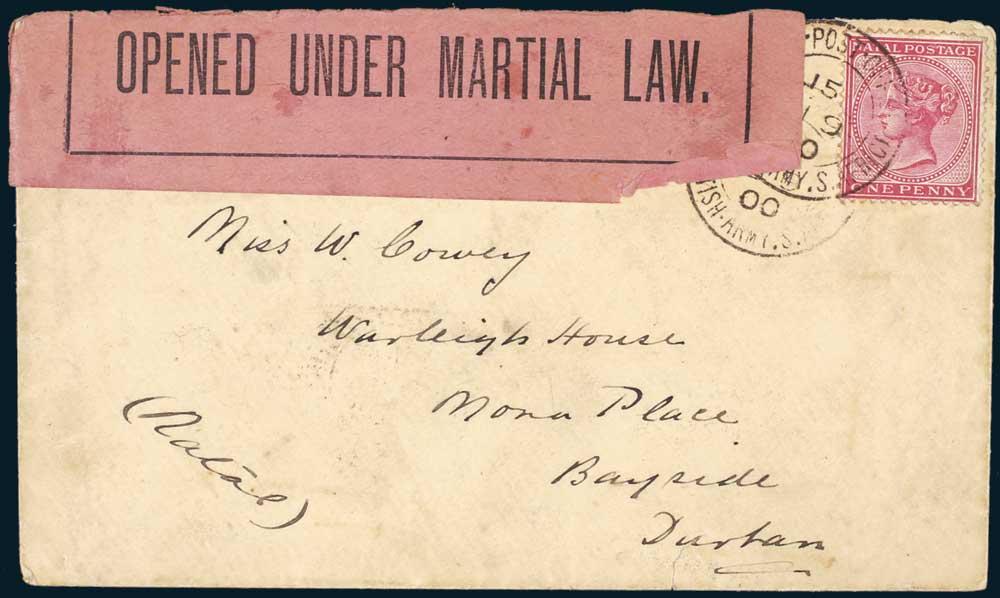 OPENED UNDER MARTIAL LAW.
NATAL POSTAGE
ONE PENNY
15
00
ARMY.S.
ISH-ARMY.S.A
Miss W. Cowey
Warleigh House
Mona Place
Bayside
Durban
(Natal)